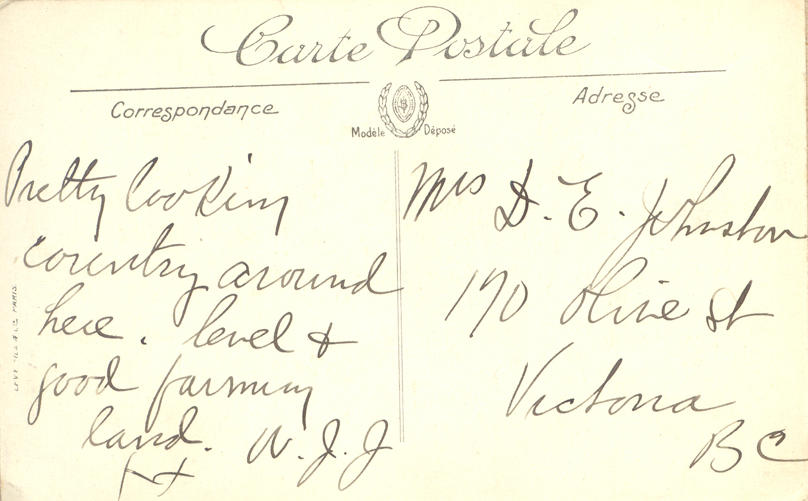 Carte Postale
Correspondance
Adresse
Modèle Déposé
Pretty looking
country around
here. level &
good farming
land. W.J.J
Mrs D. E. Johnston
170 Olive St
Victoria
BC
PARIS